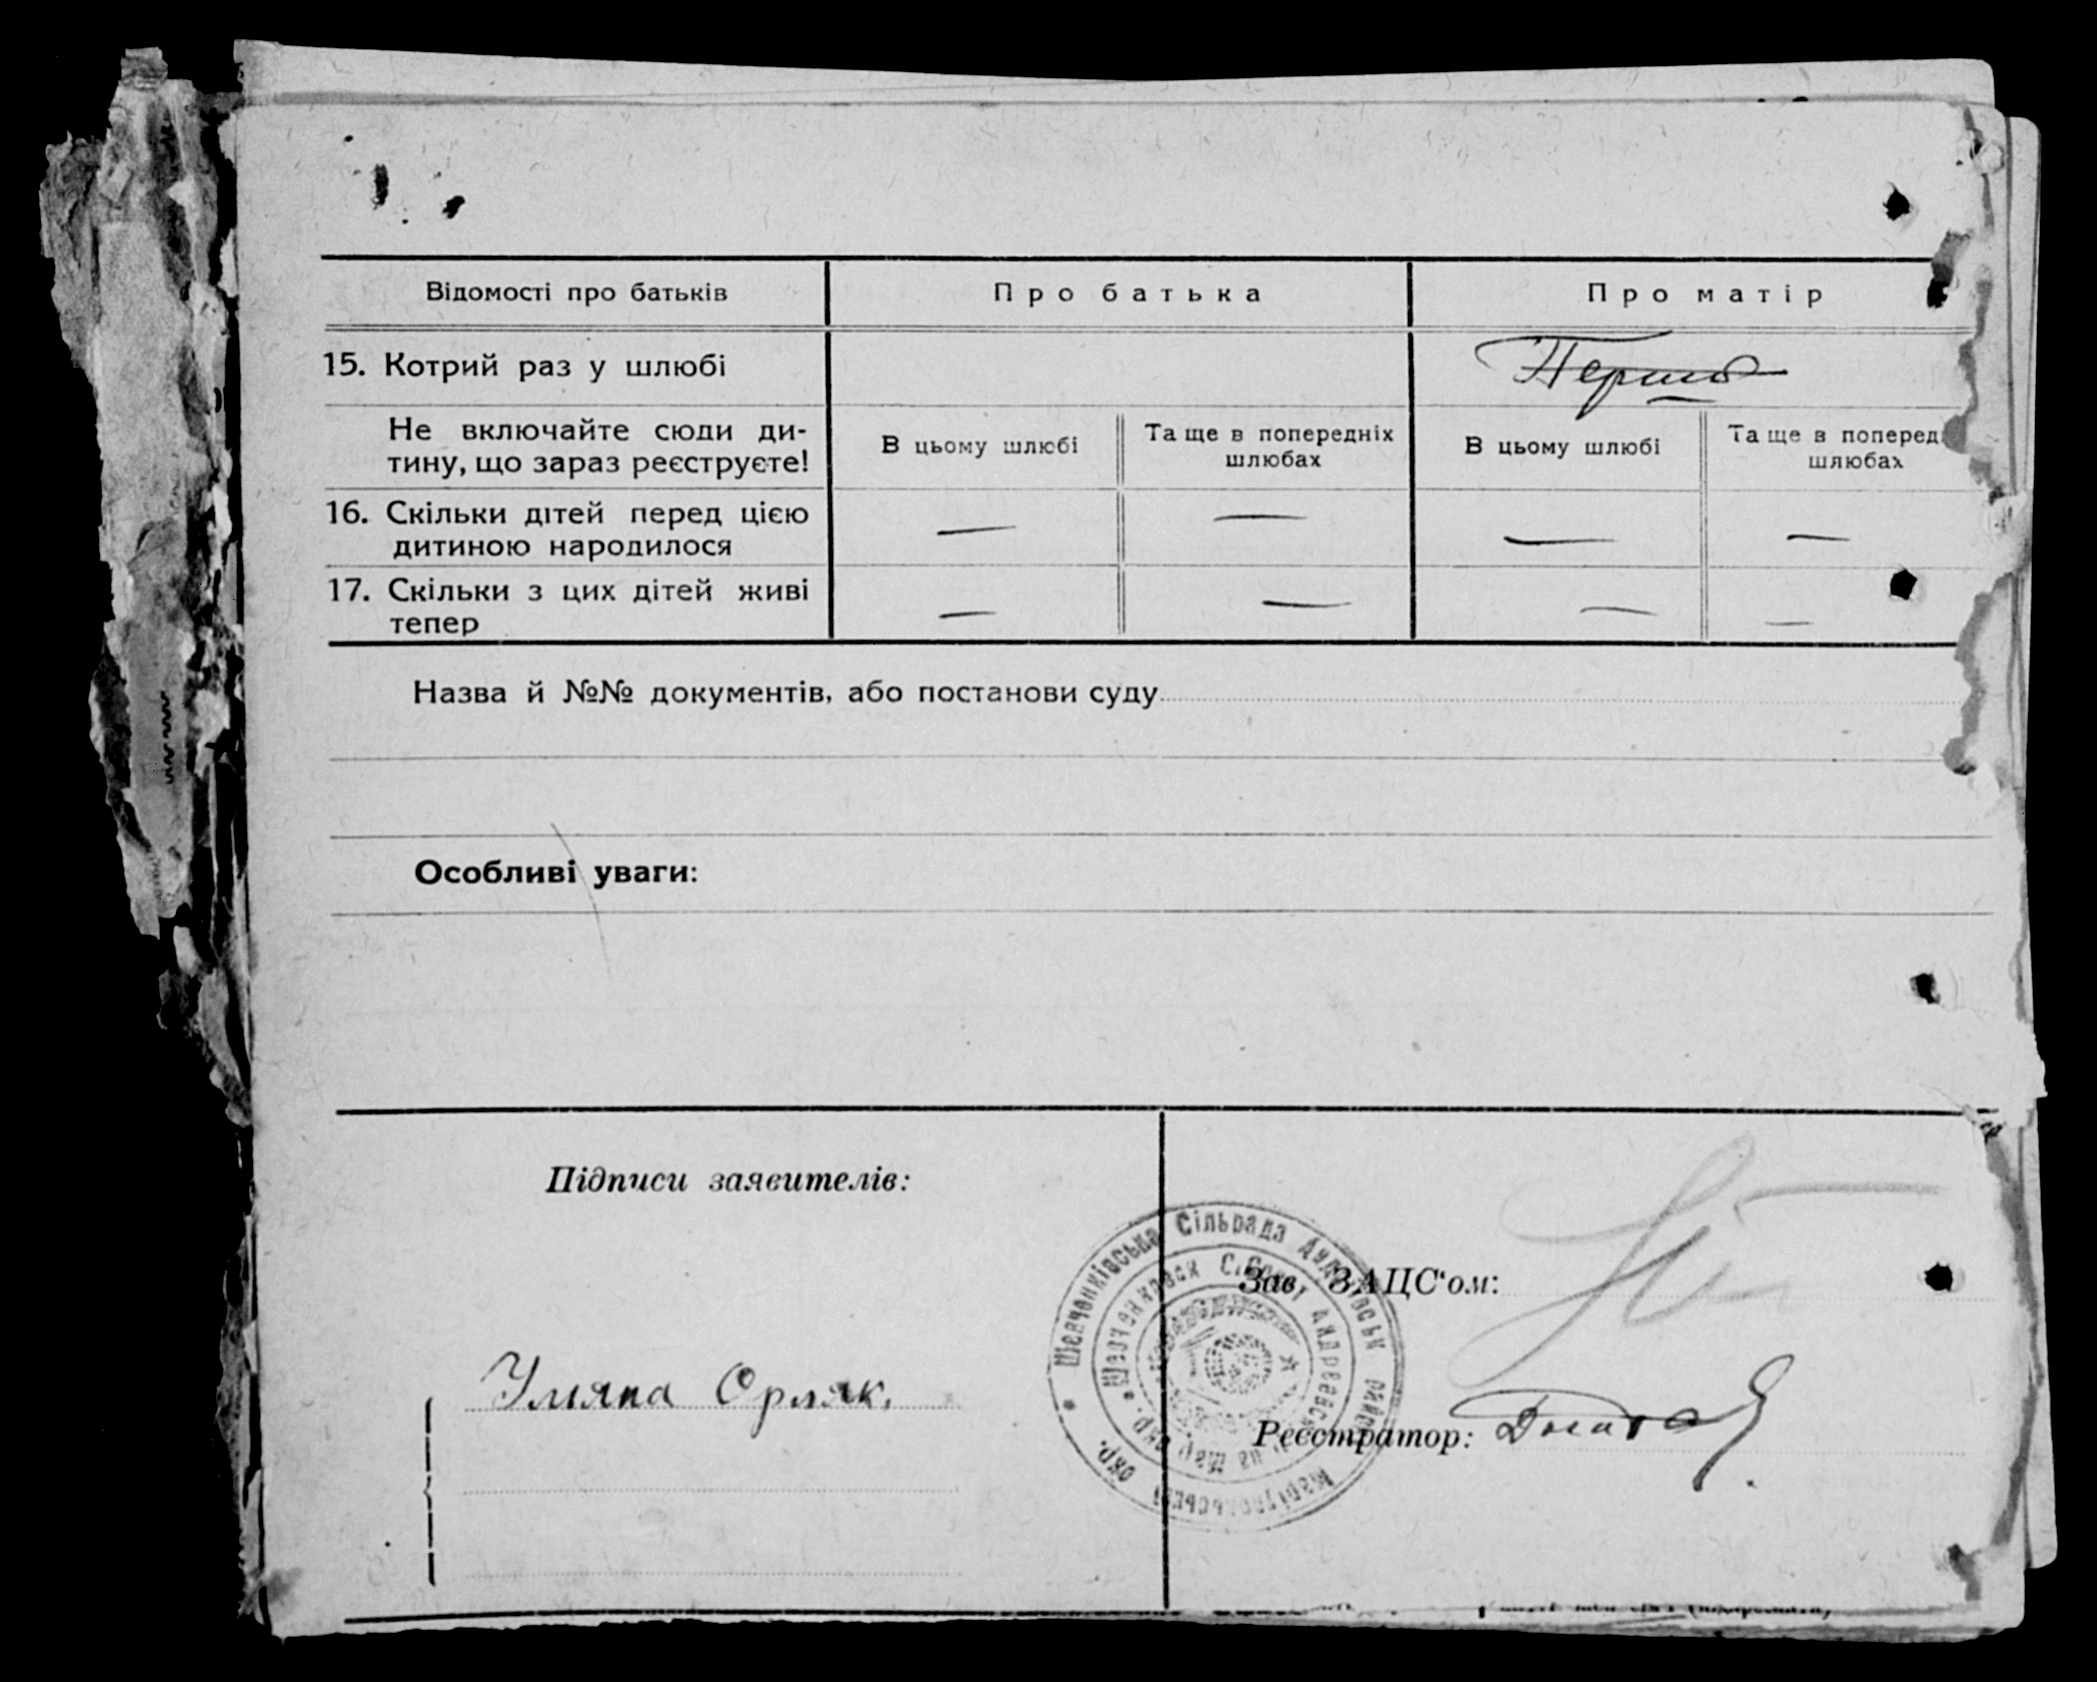 Відомості про батьків
Про батька
Про матір
15. Котрий раз у шлюбі
Не включайте сюди ди-
тину, що зараз реєструєте!
В цьому шлюбі
Та ще в попередніх
шлюбах
В цьому шлюбі
Та ще в поперед
шлюбах
16. Скільки дітей перед цією
дитиною народилося
— — — —
17. Скільки з цих дітей живі
тепер
— — — —
Назва й №№ документів, або постанови суду
Особливі уваги:
Підписи заявителів:
Уляна Орляк.
Зав. ЗАЦС‘ом:
Реєстратор:
Шевченківська Сільрада
окр.